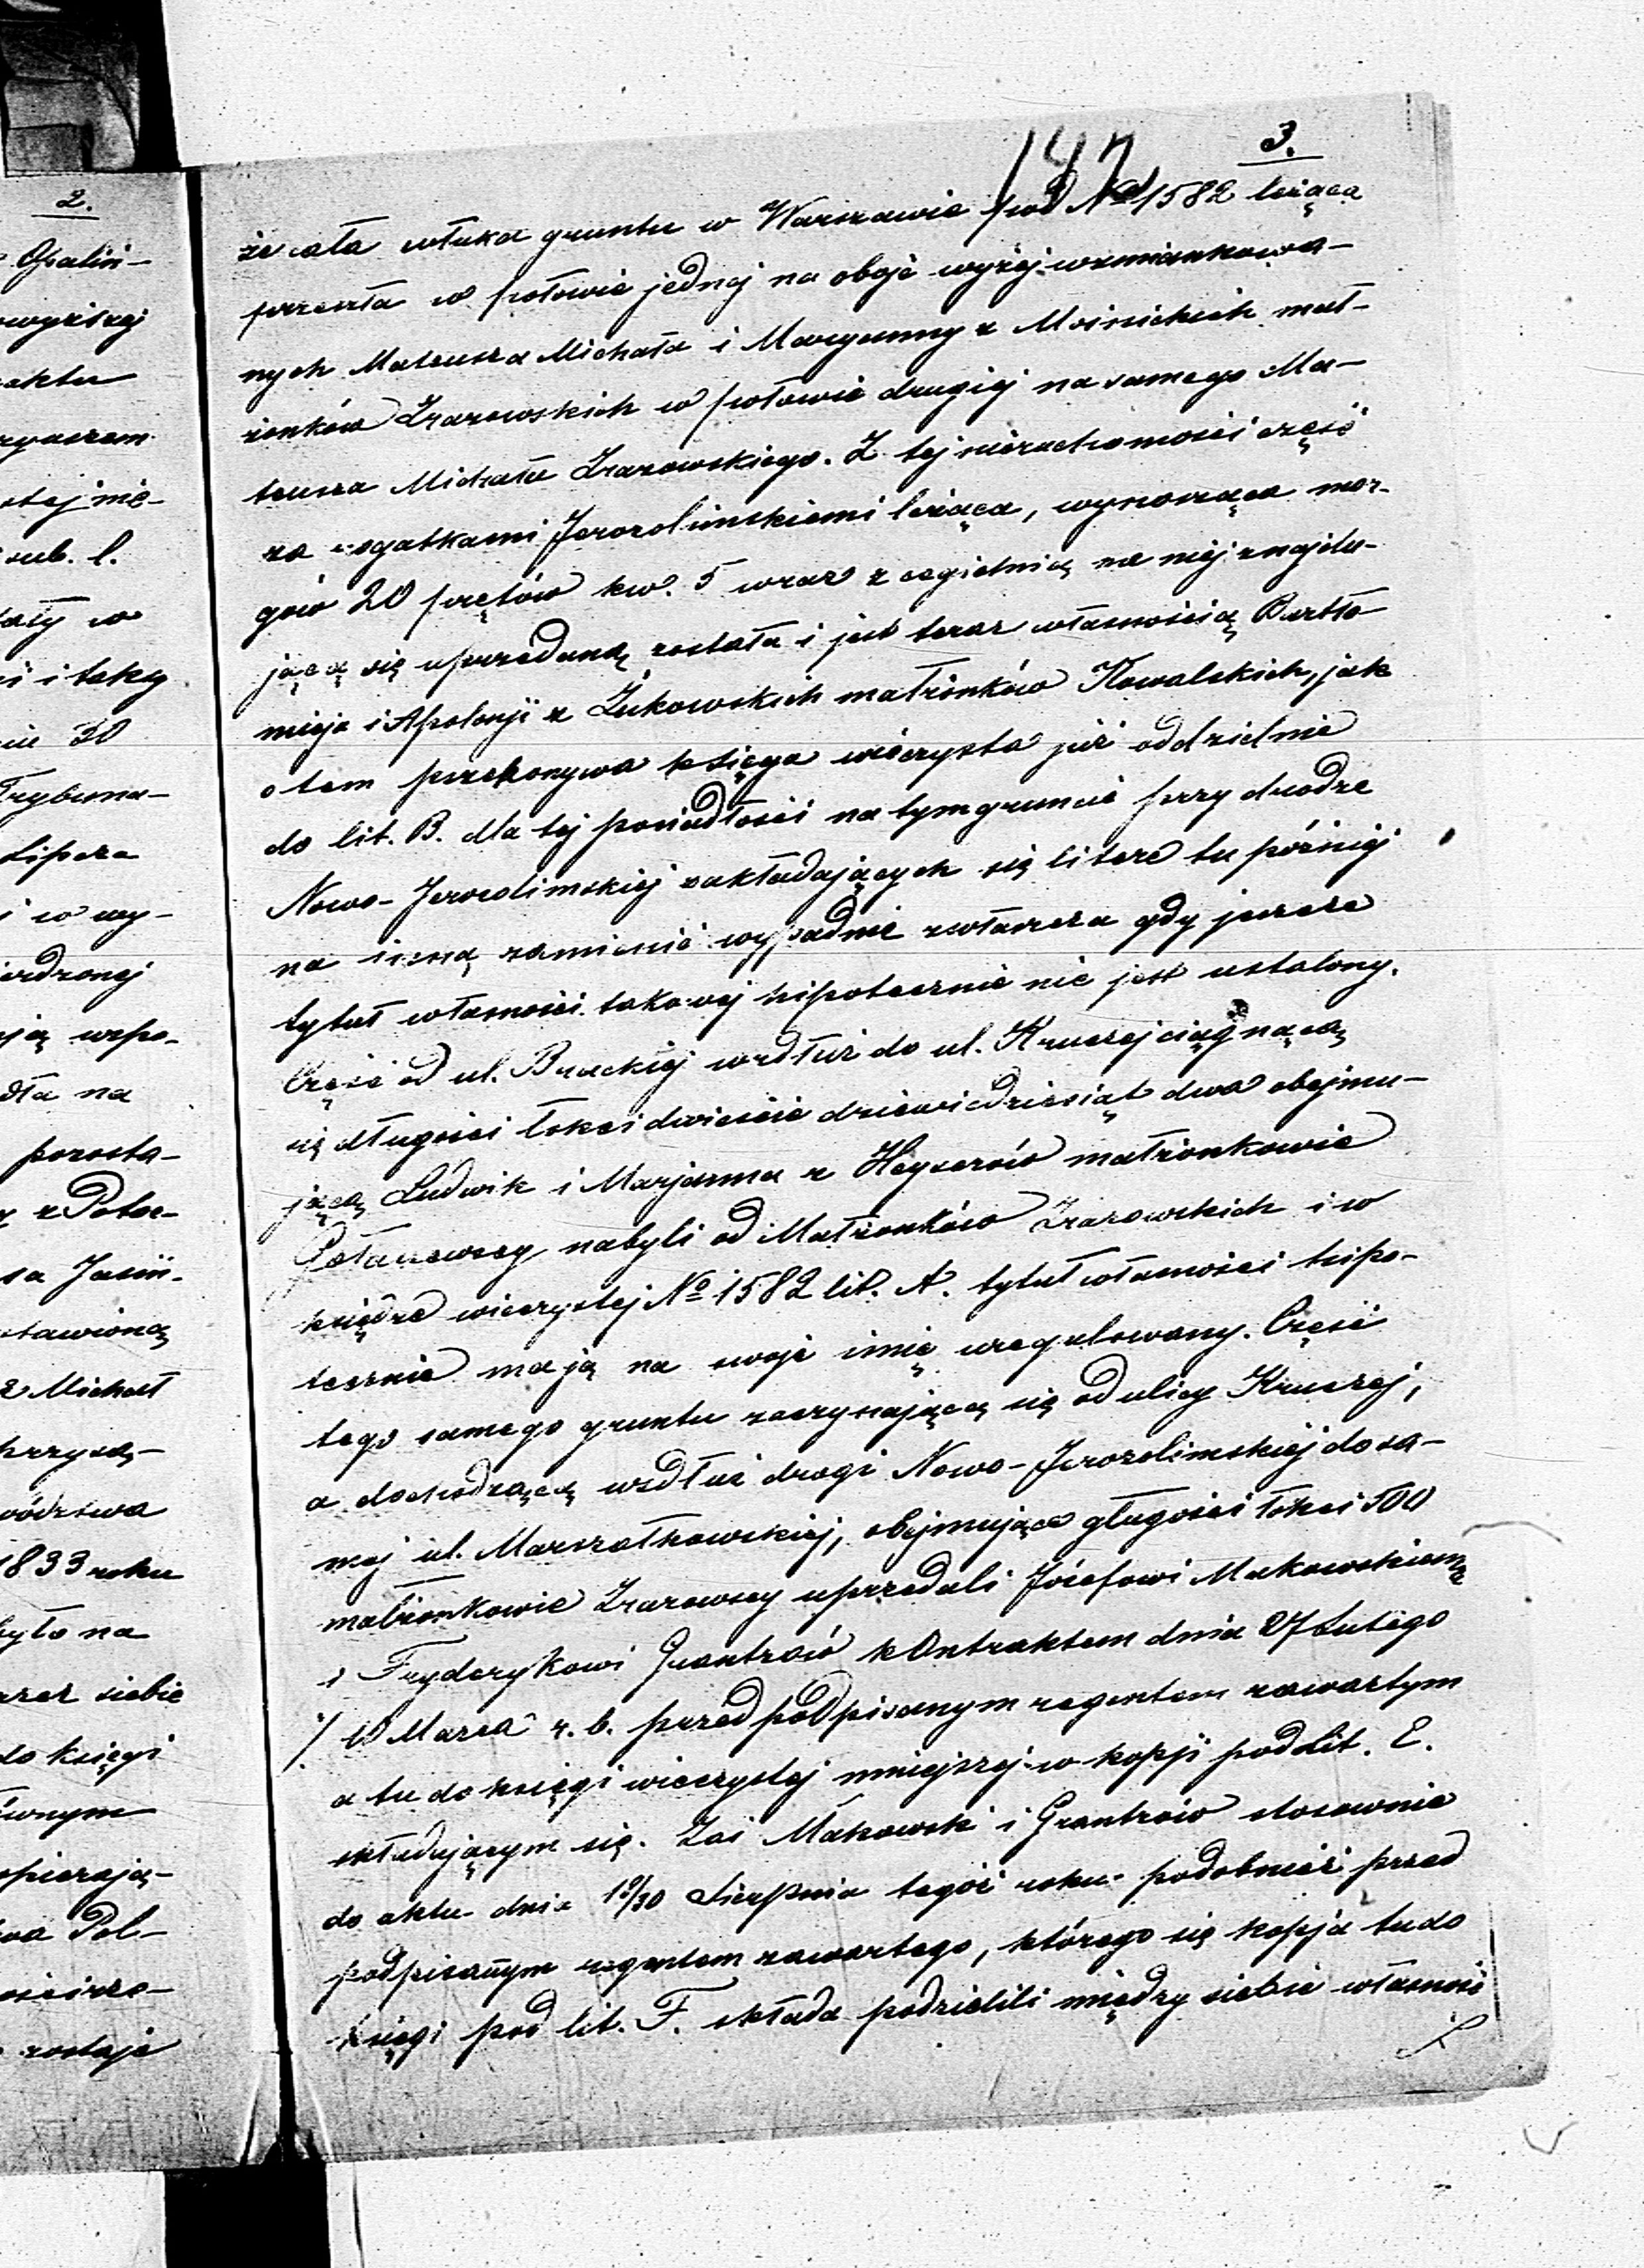 2.
Opaliń-
wyższej
aktu
stej nie-
sub. l.
w
i i taką
30
Trybuna-
Lipsza
i w wy-
ierdzonej
ją wspo-
dła na
pozosta-
z Potoc-
sa Jasiń-
stawioną
z Michał
przysą-
wództwa
1833 roku
było na
przez siebie
do księgi
ównym
opierają-
wa Pol-
zostaje
147
3.
że cała włuka gruntu w Warszawie pod No 1582 leżąca
przeszła w połowie jednej na oboje wyżej wzmiankowa-
nych Mateusza Michała i Maryanny z Moisickich mał-
żonków Zrazowskich w połowie drugiej na samego Ma-
teusza Michała Zrazowskiego. Z tej nieruchomości część
za rogatkami Jerozolimskiemi leżąca, wynosząca mor-
gów 20 prętów kw. 5 wraz z cegielnią na niej znajdu-
jącą się uprzedaną została i jest teraz własnością Bartło-
mieja i Apolonji z Żukowskich małżonków Kowalskich, jak
o tem przekonywa księga wieczysta już oddzielnie
do lit. B. dla tej posiadłości na tym gruncie przy drodze
Nowo-Jerozolimskiej zakładających się literę tu później
na inną zamienić wypadnie zwłaszcza gdy jeszcze
tytuł własności takowej hipotecznie nie jest ustalony.
Część od ul. Brackiej wzdłuż do ul. Kruczej ciągnącą
się długości łokci dwieście dziewiedziesiąt dwa obejmu-
jącą Ludwik i Marjanna z Heyserów małżonkowie
nabyli od Małżonków Zrazowskich i w
księdze wieczystej No 1582 lit. A. tytuł własności hipo-
tecznie mają na swoje imię uregulowany. Część
tego samego gruntu zaczynającą się od ulicy Kruczej,
a dochodzącą wzdłuż drogi Nowo-Jerozolimskiej do sa-
mej ul. Marszałkowskiej, obejmującą gługości łokci 500
małżonkowie Zrazowscy uprzedali Józefowi Makowskiemu
i Fryderykowi Grantzów kontraktem dnia 27 Lutego
/ 10 Marca r. b. przed podpisanym regentem zawartym
a tu do księgi wieczystej niniejszej w kopji pod lit. E.
składającym się. Zaś Makowski i Grantzów stosownie
do aktu dnia 18/30 Sierpnia tegoż roku podobnież przed
podpisanym regentem zawartego, którego się kopja tu do
księgi pod lit. F. składa podzielili między siebie własność